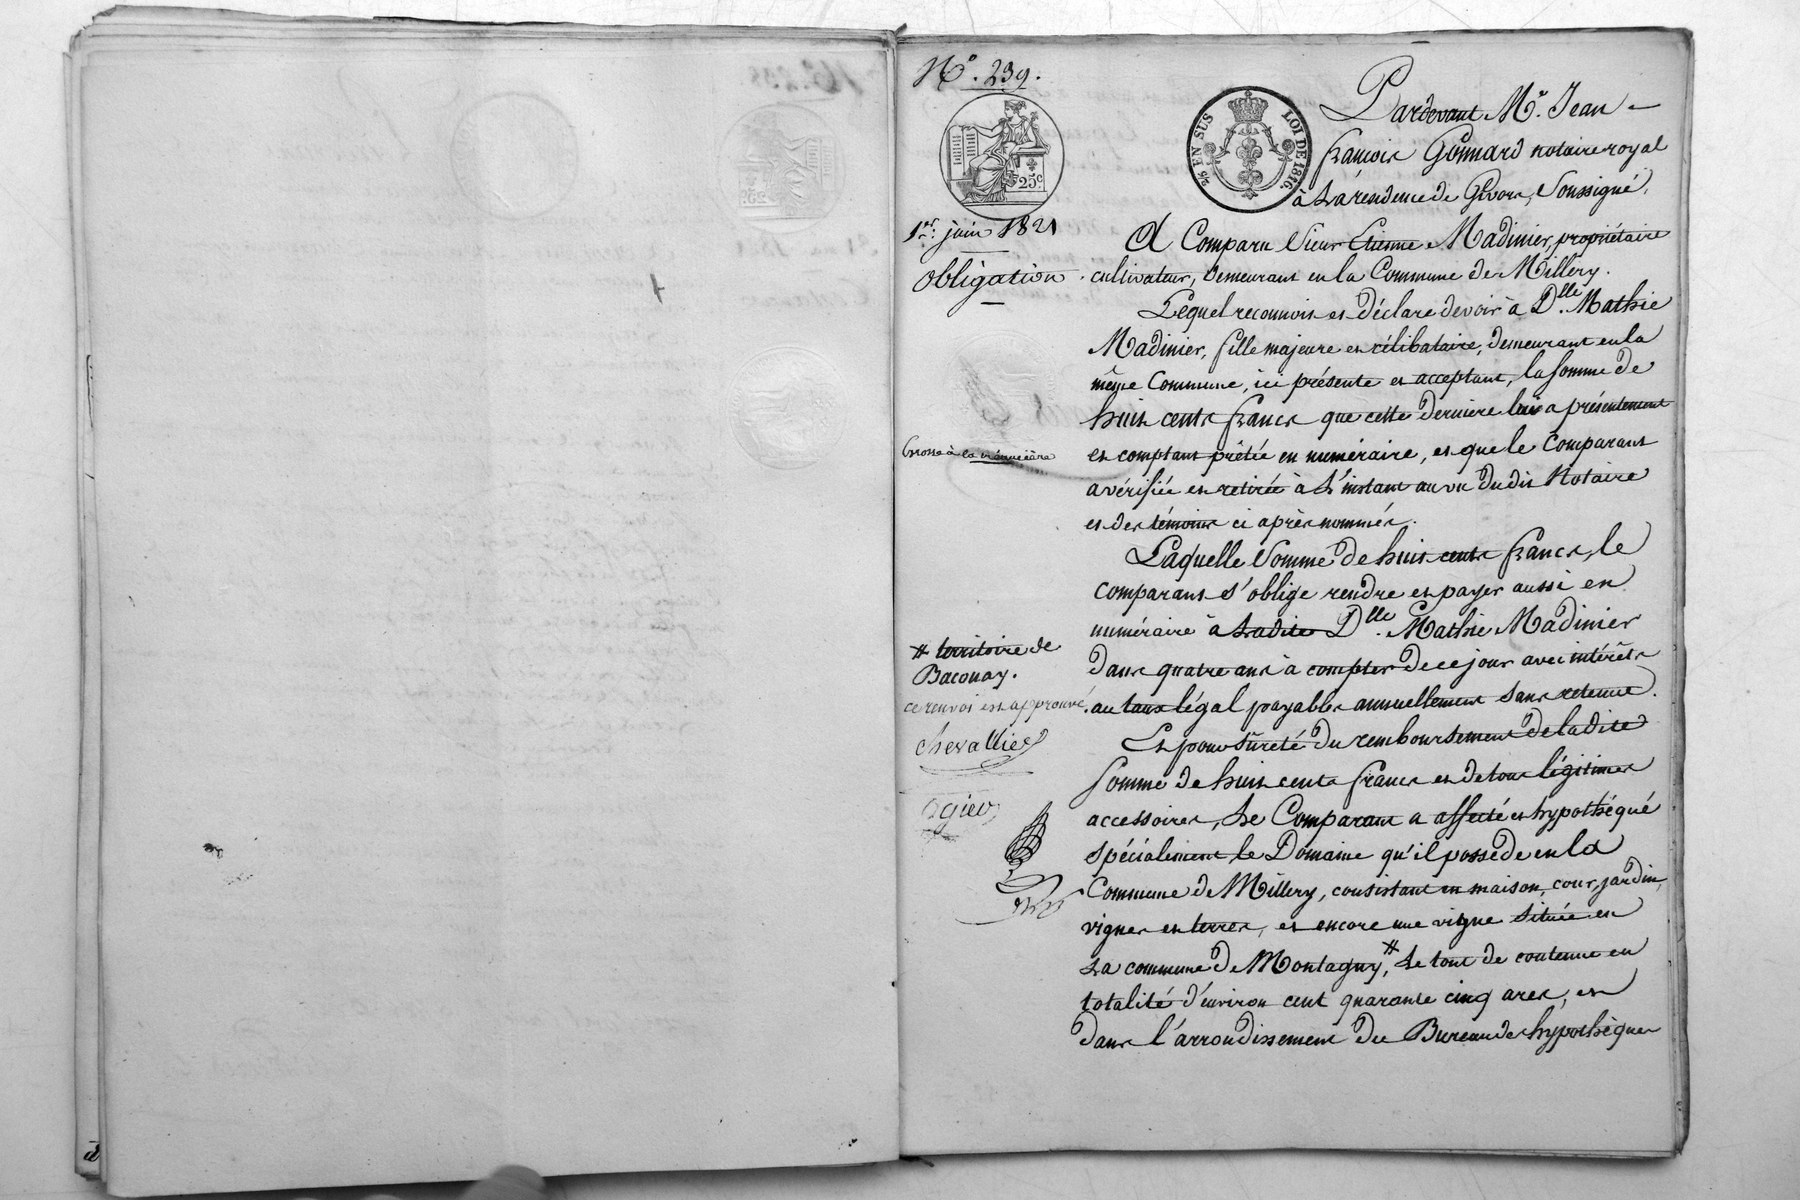 N.º 239.
25c
2/6 EN SUS LOI DE 1816.
Pardevant M.e Jean
françois Gonnard notaire royal
à La résidence de Givors, Soussigné,
1.er juin 1821
obligation.
A Comparu Sieur Etienne Madinier, propriétaire
cultivateur, demeurant en la Commune de Millery.
Lequel reconnoit et déclare devoir à D.lle Mathie
Madinier, fille majeure et célibataire, demeurant en la
même Commune, ici présente et acceptant, la somme de
huit cents francs que cette dernière lui a présentement
et comptant prêtée en numéraire, et que le Comparant
a vérifiée et retirée à L'instant au vu dudit Notaire
et des témoins ci après nommés.
Grosse à la créancière
Laquelle Somme de huit cents francs, le
comparant s'oblige rendre et payer aussi en
numéraire à Ladite D.lle Mathie Madinier
dans quatre ans à compter de ce jour avec intérêts
au taux légal payables annuellement sans retenue.
Et pour sûreté du remboursement de ladite
Somme de huit cents francs et de tous légitimes
accessoires, Le Comparant a affecté et hypothéqué
spécialement le Domaine qu'il possède en la
Commune de Millery, consistant en maison, cour, jardin,
vignes et terres, et encore une vigne située en
La commune de Montagny,# Le tout de contenue en
totalité d'environ cent quarante cinq ares, et
dans l'arrondissement du Bureau des hypothèques
# territoire de
Baconay.
ce renvoi est approuvé.
chevallier
ogier